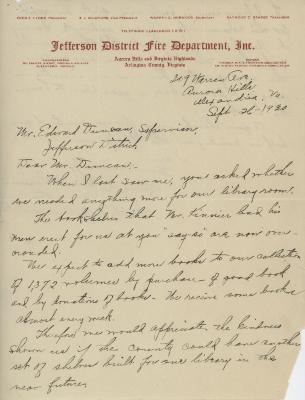 Jefferson District Fire Department, Inc.
Aurora Hills and Virginia Highlands
Arlington County, Virginia
209 Warren Ave,
Aurora Hills,
Alexandria, Va.
Sept. 26 - 1930
Mr. Edward Duncan, Supervisor,
Jefferson District
Dear Mr. Duncan:-
When I last saw me, you asked whether
we needed anything more for our library room.
The bookshelves that Mr. Kinnier had his
men erect for us at your "say so" are now over-
crowded.
We expect to add more books to our collection
of 1,372 volumes by purchase of good book
and by donations of books. We receive some books
almost every week.
Therefore we would appreciate the kindness
shown us if the county could have another
set of shelves built for our library in the
near future.